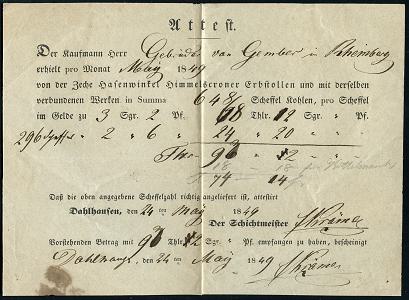 Attest.
Der Kaufmann Herr Gebrüder van Gember in Rheinberg
erhielt pro Monat May 1849
von der Zeche Hasenwinkel Himmelscroner Erbstollen und mit derselben
verbundenen Werken in Summa 648 Scheffel Kohlen, pro Scheffel
im Gelde zu 3 Sgr. 2 Pf. 68 Thlr. 12 Sgr. " Pf.
296 Scheffel " 2 " 6 " 24 " 20 " "
Thlr 93 " 2 " "
18 " 18
74 14
Daß die oben angegebene Scheffelzahl richtig angeliefert ist, attestirt
Dahlhausen, den 24 ten May 1849
Der Schichtmeister
Krämer
Vorstehenden Betrag mit 93 Thlr. 2 Sgr. " Pf. empfangen zu haben, bescheinigt
Dahlhausen, den 24 ten May 1849
Krämer